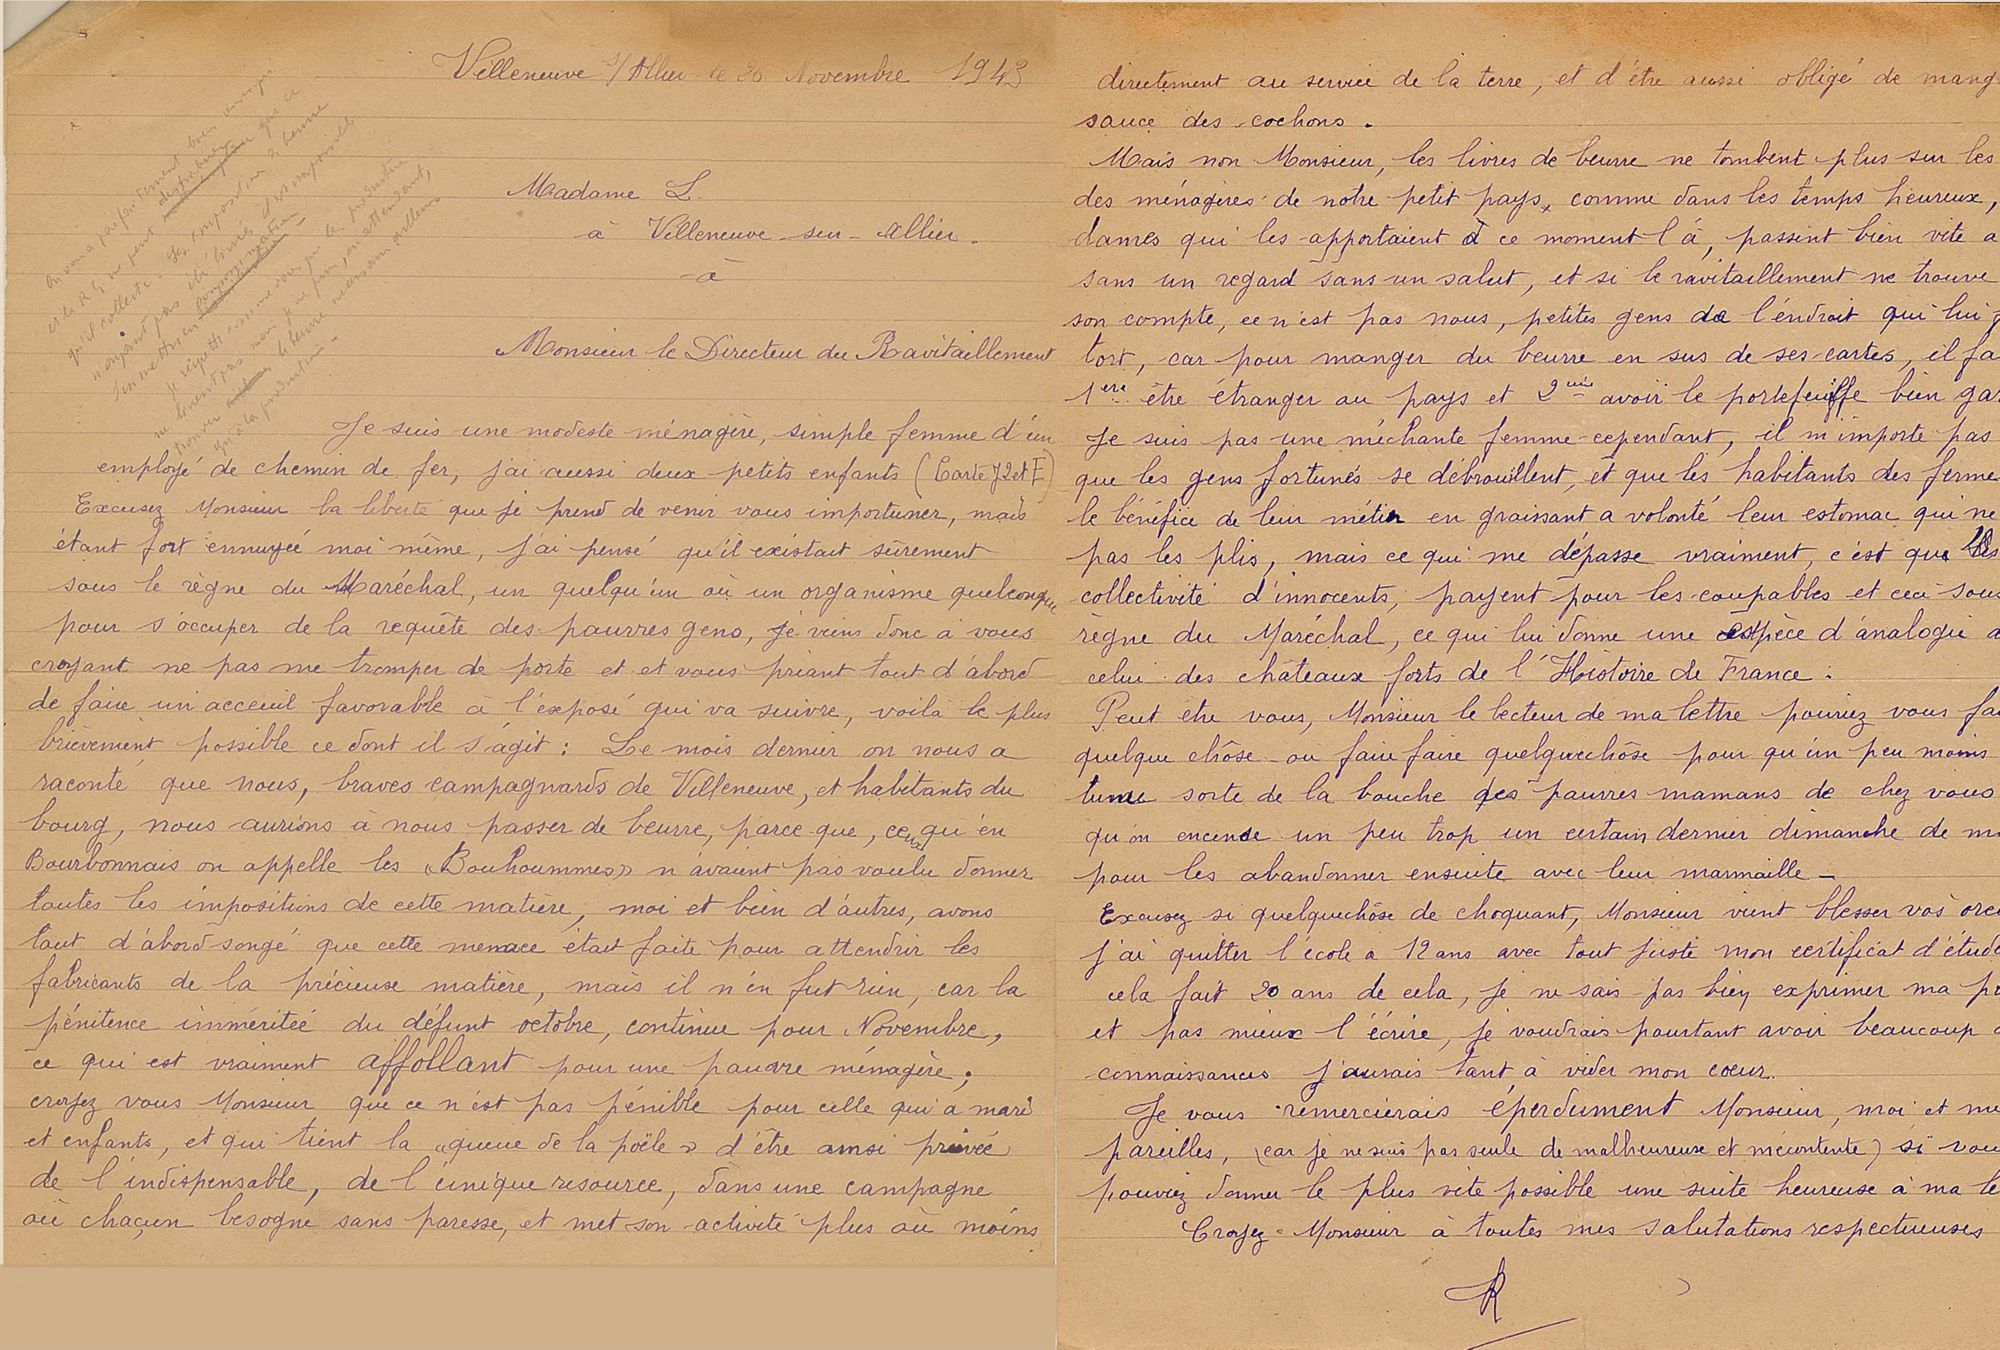 Villeneuve s/Allier le 20 Novembre 1943
Madame L.
à Villeneuve-sur-Allier.
à
Monsieur le Directeur du Ravitaillement
Je suis une modeste ménagère, simple femme d'un
employé de chemin de fer, j'ai aussi deux petits enfants (Carte J2 et E)
Excusez Monsieur la liberté que je prend de venir vous importuner, mais
étant fort ennuyée moi même, j'ai pensé qu'il existait sûrement
sous le règne du Maréchal, un quelqu'un où un organisme quelconque
pour s'occuper de la requête des pauvres gens, je viens donc à vous
croyant ne pas me tromper de porte et et vous priant tout d'abord
de faire un acceuil favorable à l'éxposé qui va suivre, voilà le plus
brièvement possible ce dont il s'agit : Le mois dernier on nous a
raconté que nous, braves campagnards de Villeneuve, et habitants du
bourg, nous aurions à nous passer de beurre, parce que, ceux qu'en
Bourbonnais on appelle les «Bouhoummes» n'avaient pas voulu donner
toutes les impositions de cette matière, moi et bien d'autres, avons
tout d'abord songé que cette menace était faite pour attendrir les
fabricants de la précieuse matière, mais il n'en fut rien, car la
pénitence imméritée du défunt octobre, continue pour Novembre,
ce qui est vraiment affollant pour une pauvre ménagère ;
croyez vous Monsieur que ce n'est pas pénible pour celle qui a mari
et enfants, et qui tient la «queue de la poële» d'être ainsi privée
de l'indispensable, de l'unique resource, dans une campagne
où chaçun besogne sans paresse, et met son activité plus où moins
directement au service de la terre, et d'être aussi obligé de mang
sauce des cochons.
Mais non Monsieur, les livres de beurre ne tombent plus sur les
des ménagères de notre petit pays, comme dans les temps heureux,
dames qui les apportaient à ce moment là, passent bien vite a
sans un regard sans un salut, et si le ravitaillement ne trouve
son compte, ce n'est pas nous, petites gens de l'endroit qui lui
tort, car pour manger du beurre en sus de ses cartes, il fa
1ere être étranger au pays et 2me avoir le portefeuille bien gar
Je suis pas une méchante femme cependant, il m'importe pas
que les gens fortunés se débrouillent, et que les habitants des ferme
le bénéfice de leur métier en graissant a volonté leur estomac qui ne
pas les plis, mais ce qui me dépasse vraiment, c'est que les
collectivité d'innocents, payent pour les coupables et ceci sous
règne du Maréchal, ce qui lui donne une espèce d'analogie a
celui des châteaux forts de l'Histoire de France :
Peut être vous, Monsieur le lecteur de ma lettre pouriez vous fai
quelque chôse ou faire faire quelquechôse pour qu'un peu moins
tume sorte de la bouche des pauvres mamans de chez vous
qu'on encense un peu trop un certain dernier dimanche de ma
pour les abandonner ensuite avec leur marmaille _
Excusez si quelquechôse de choquant, Monsieur vient blesser vos orei
j'ai quitter l'école a 12 ans avec tout juste mon certificat d'étude
cela fait 20 ans de cela, je ne sais pas bien exprimer ma p
et pas mieux l'écrire, je voudrais pourtant avoir beaucoup d
connaissances j'aurais tant à vider mon coeur.
Je vous remercierais éperdument Monsieur, moi et me
pareilles, (car je ne suis pas seule de malheureuse et mécontente) si vou
pouviez donner le plus vite possible une suite heureuse à ma le
Croyez Monsieur à toutes mes salutations respectueuses